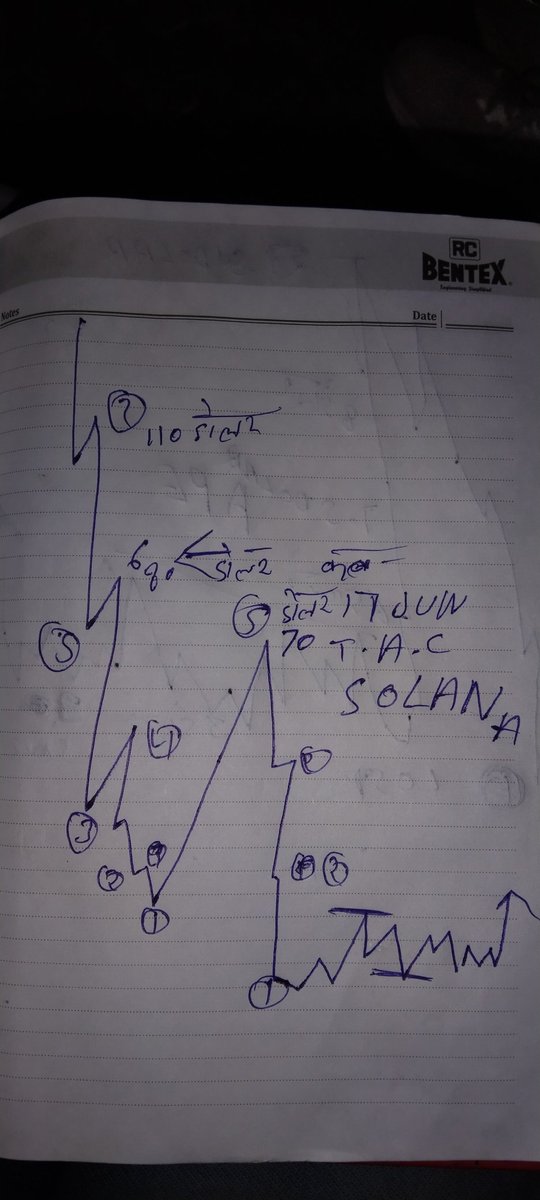 RC
BENTEX
Engineering Simplified
Notes
Date
7
110 डॉलर
6 90 डॉलर
5
5 डॉलर 17 JUN
70 T.A.C
SOLANA
4
3
2
3
2
1
1